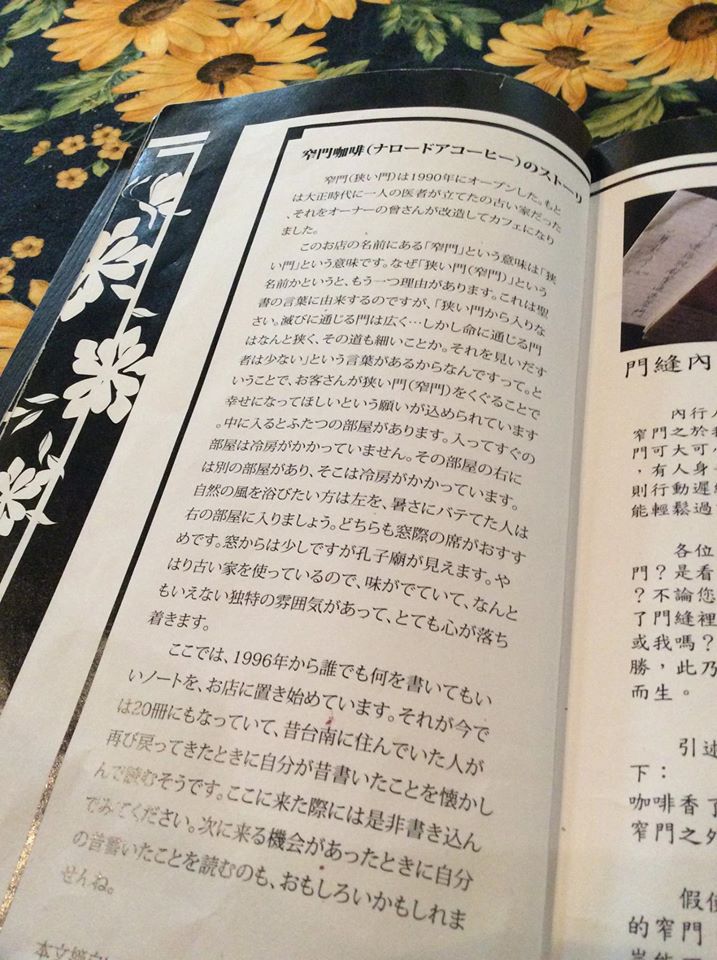 窄門咖啡(ナロードアコーヒー)のストーリ
窄門(狭い門)は1990年にオープンした。もと
は大正時代に一人の医者が立てたの古い家だった
、それをオーナーの曾さんが改造してカフェになり
ました。
このお店の名前にある「窄門」という意味は「狭
い門」という意味です。なぜ「狭い門(窄門)」という
名前かというと、もう一つ理由があります。これは聖
書の言葉に由来するのですが、「狭い門から入りな
さい。滅びに通じる門は広く…しかし命に通じる門
はなんと狭く、その道も細いことか。それを見いだす
者は少ない」という言葉があるからなんですって。と
いうことで、お客さんが狭い門(窄門)をくぐることで
幸せになってほしいという願いが込められています
。中に入るとふたつの部屋があります。入ってすぐの
部屋は冷房がかかっていません。その部屋の右に
は別の部屋があり、そこは冷房がかかっています。
自然の風を浴びたい方は左を、暑さにバテてた人は
右の部屋に入りましょう。どちらも窓際の席がおすす
めです。窓からは少しですが孔子廟が見えます。や
はり古い家を使っているので、味がでていて、なんと
もいえない独特の雰囲気があって、とても心が落ち
着きます。
ここでは、1996年から誰でも何を書いてもい
いノートを、お店に置き始めています。それが今で
は20冊にもなっていて、昔台南に住んでいた人が
再び戻ってきたときに自分が昔書いたことを懐かし
んで読むそうです。ここに来た際には是非書き込ん
でみてください。次に来る機会があったときに自分
の昔書いたことを読むのも、おもしろいかもしれま
せんね。
本文
門縫內
內行人
窄門之於
門可大可
，有人身
則行動遲
能輕鬆過
各位
門？是看
？不論您
了門縫裡
或我嗎？
勝，此乃
而生。
引述
下：
咖啡香了
窄門之外
假使
的窄門